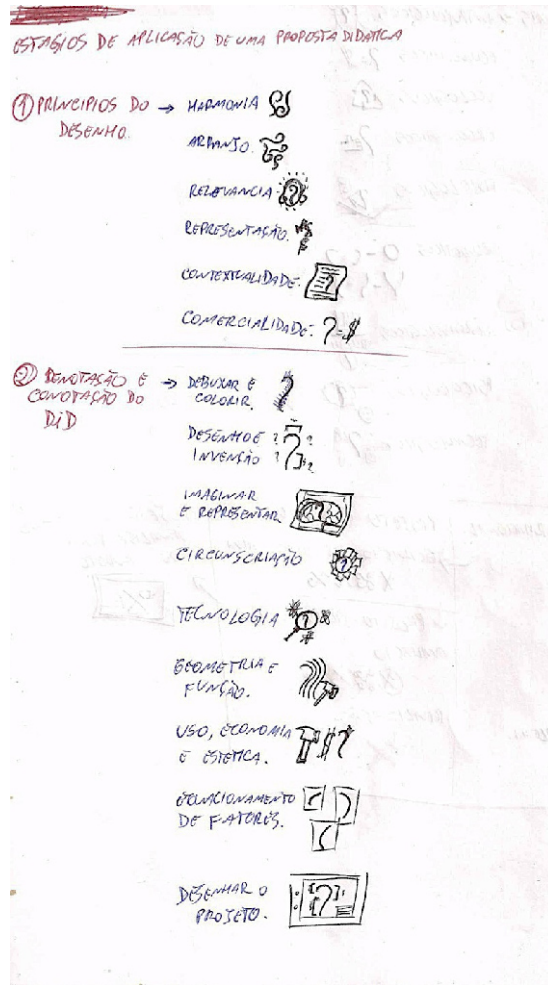 ESTAGIOS DE APLICAÇÃO DE UMA PROPOSTA DIDATICA
① PRINCIPIOS DO → HARMONIA
DESENHO.
ARRANJO.
RELEVANCIA
REPRESENTAÇÃO.
CONTEXTUALIDADE.
COMERCIALIDADE. ?=$
② DENOTAÇÃO E → DEBUXAR E
CONOTAÇÃO DO COLORIR.
DiD
DESENHO E
INVENÇÃO
IMAGINAR
E REPRESENTAR
CIRCUNSCRIAÇÃO
TECNOLOGIA
GEOMETRIA E
FUNÇÃO.
USO, ECONOMIA
E ESTETICA.
DE FATORES.
DESENHAR O
PROJETO.